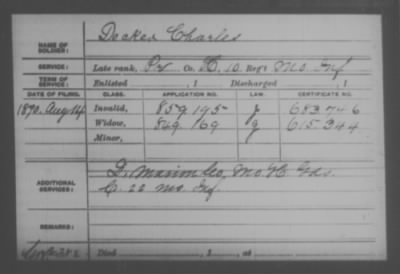 NAME OF SOLDIER: Decker Charles
SERVICE: Late rank, Pv Co. E, 10 Reg't Mo Inf
TERM OF SERVICE: Enlisted , 1 Discharged , 1
DATE OF FILING. CLASS. APPLICATION NO. LAW. CERTIFICATE NO.
1890. Aug 14 Invalid, 859 195 J 683 746
Widow, 849 169 J 615 344
Minor,
ADDITIONAL SERVICES: D. Marion Co, Mo H. Gds.
C. 22 Mo. Inf
REMARKS:
Died , 1 , at